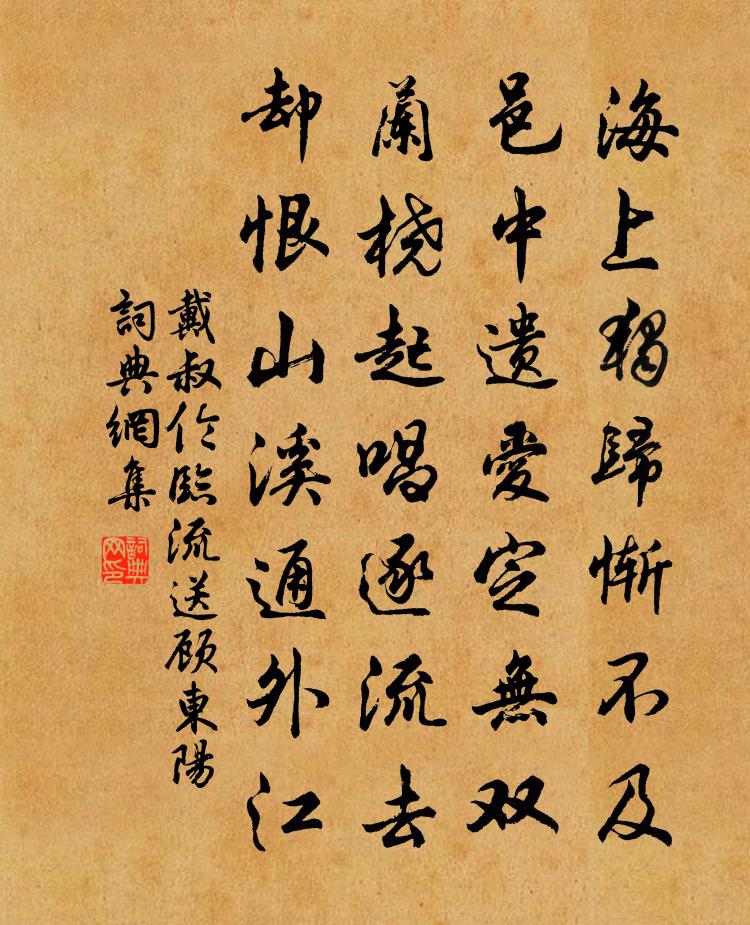 海上獨歸慚不及
邑中遺愛定無双
蘭橈起唱逐流去
却恨山溪通外江
戴叔伦臨流送顾東陽
詞典網集
詞典网印